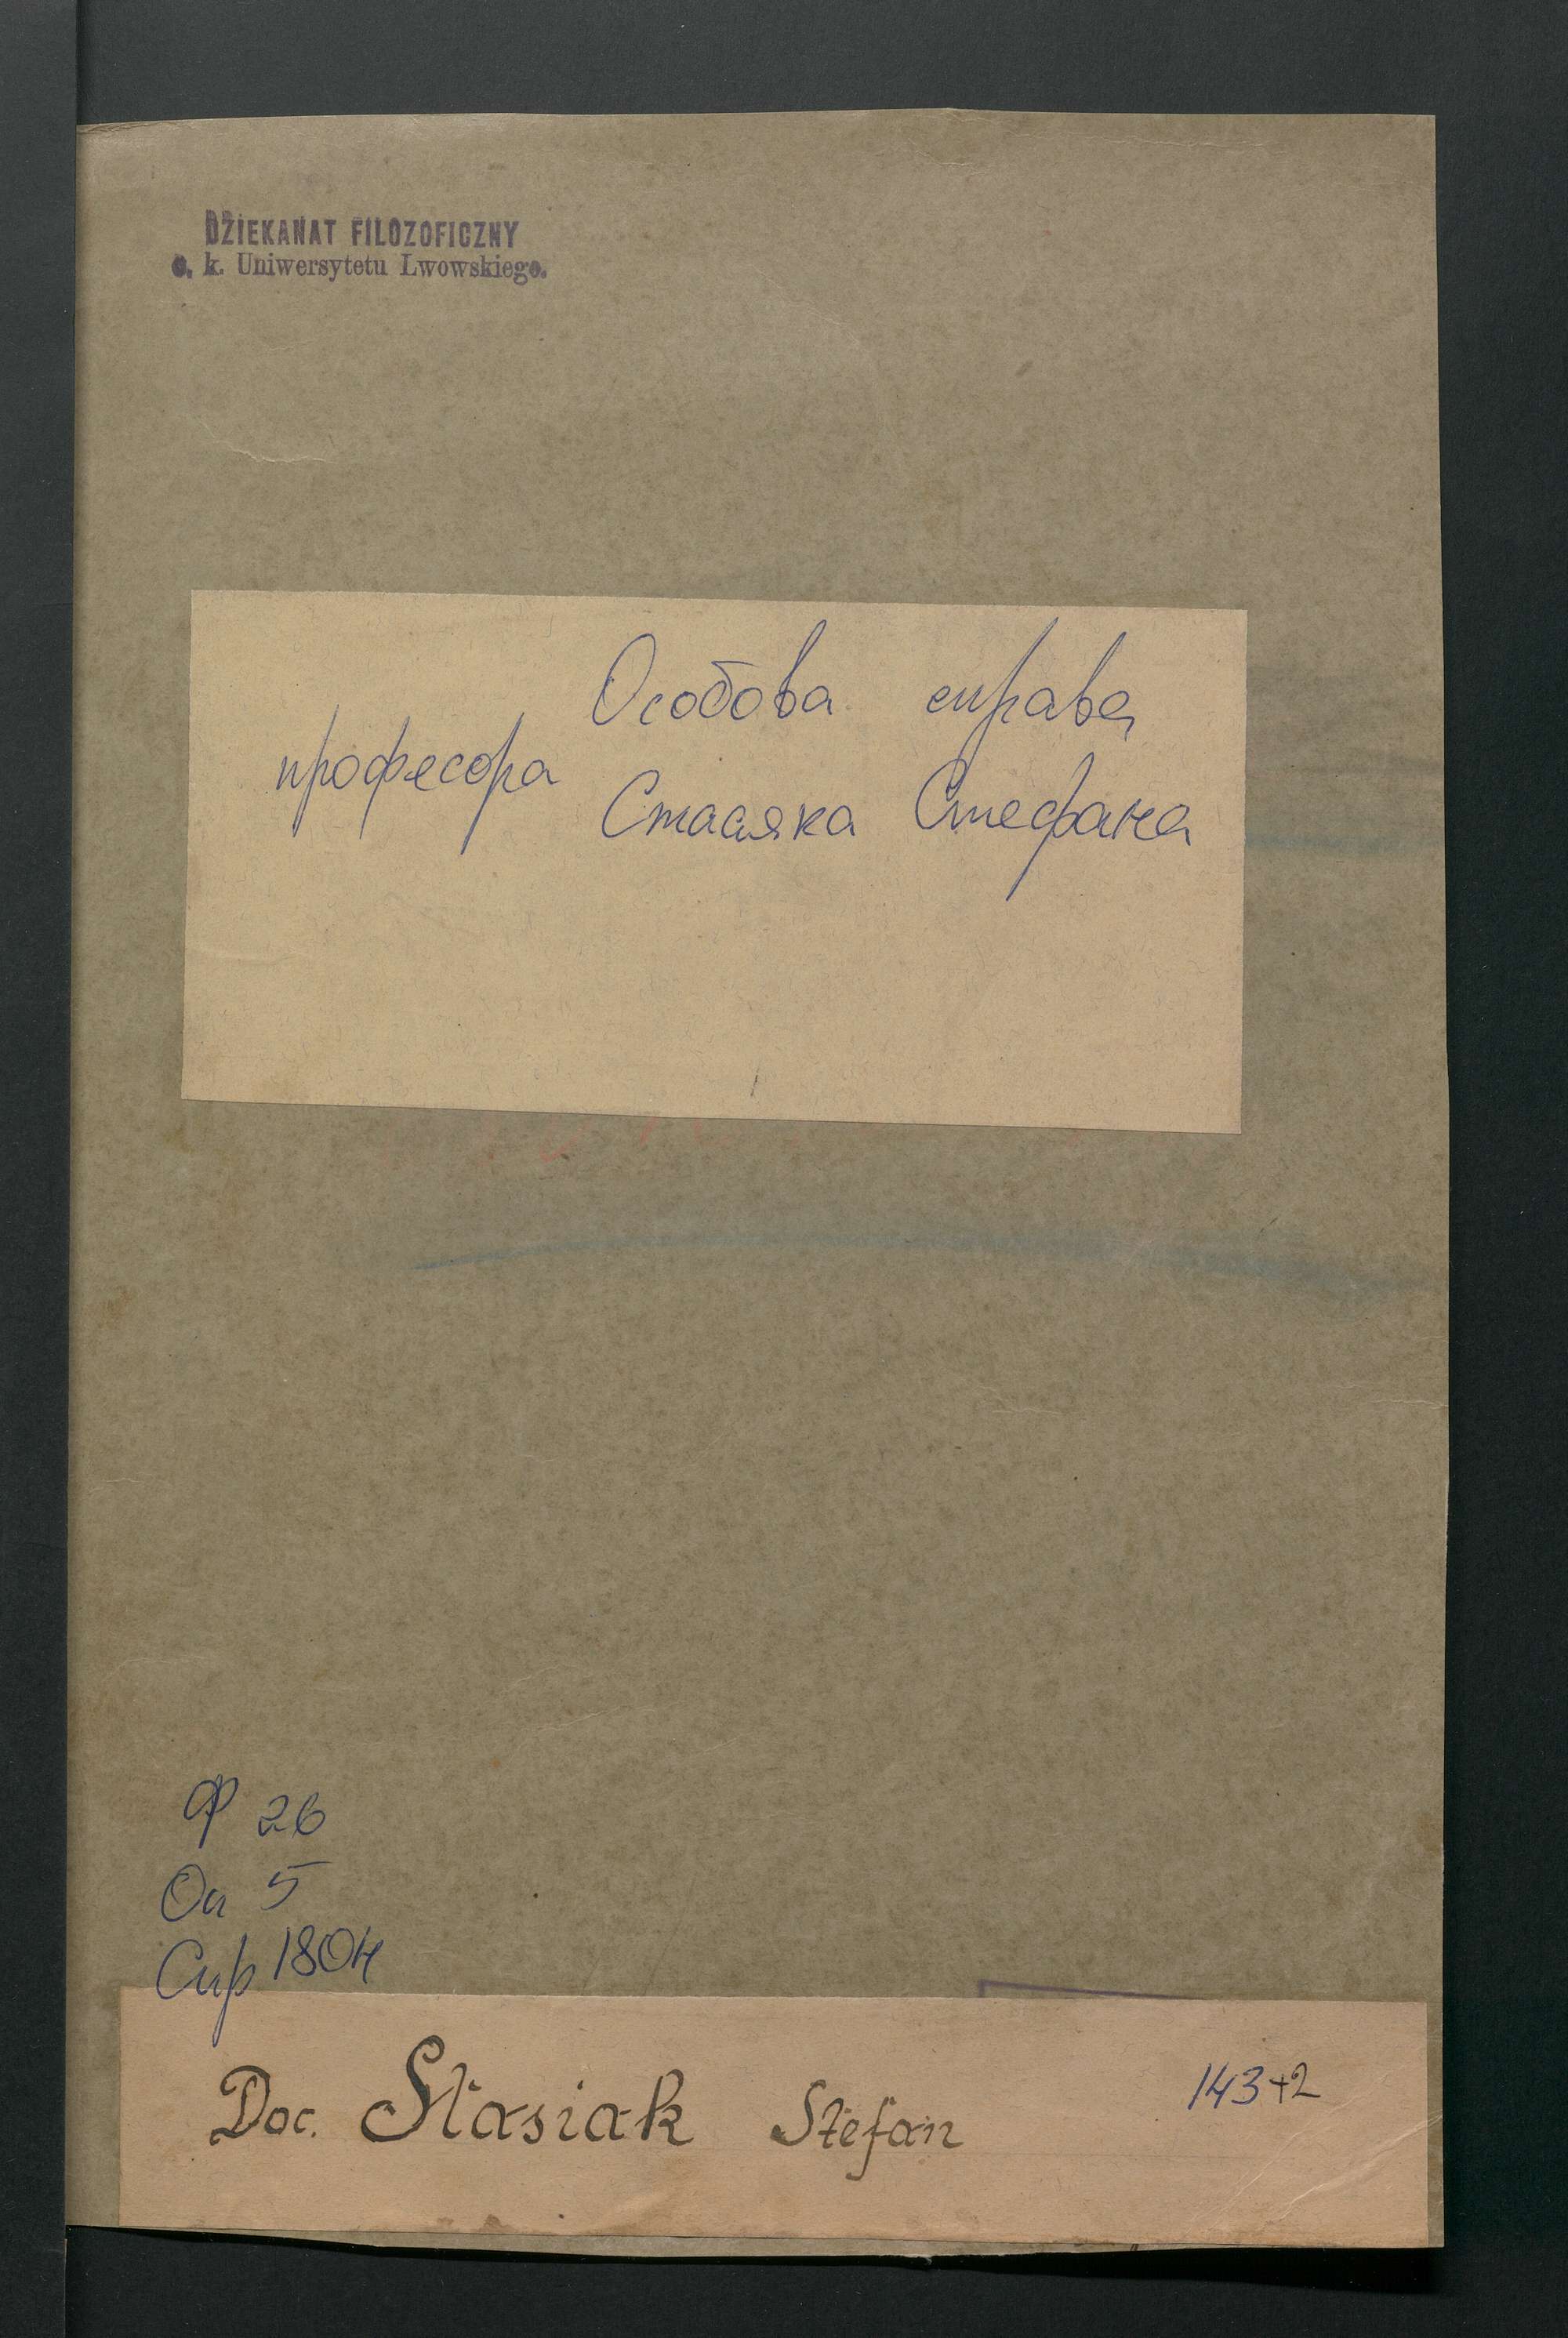 DZIEKANAT FILOZOFICZNY
c. k. Uniwersytetu Lwowskiego.
Особова справа
професора Стасяка Стефана
Ф 26
Оп 5
Спр 1804
Doc. Stasiak Stefan 143+2